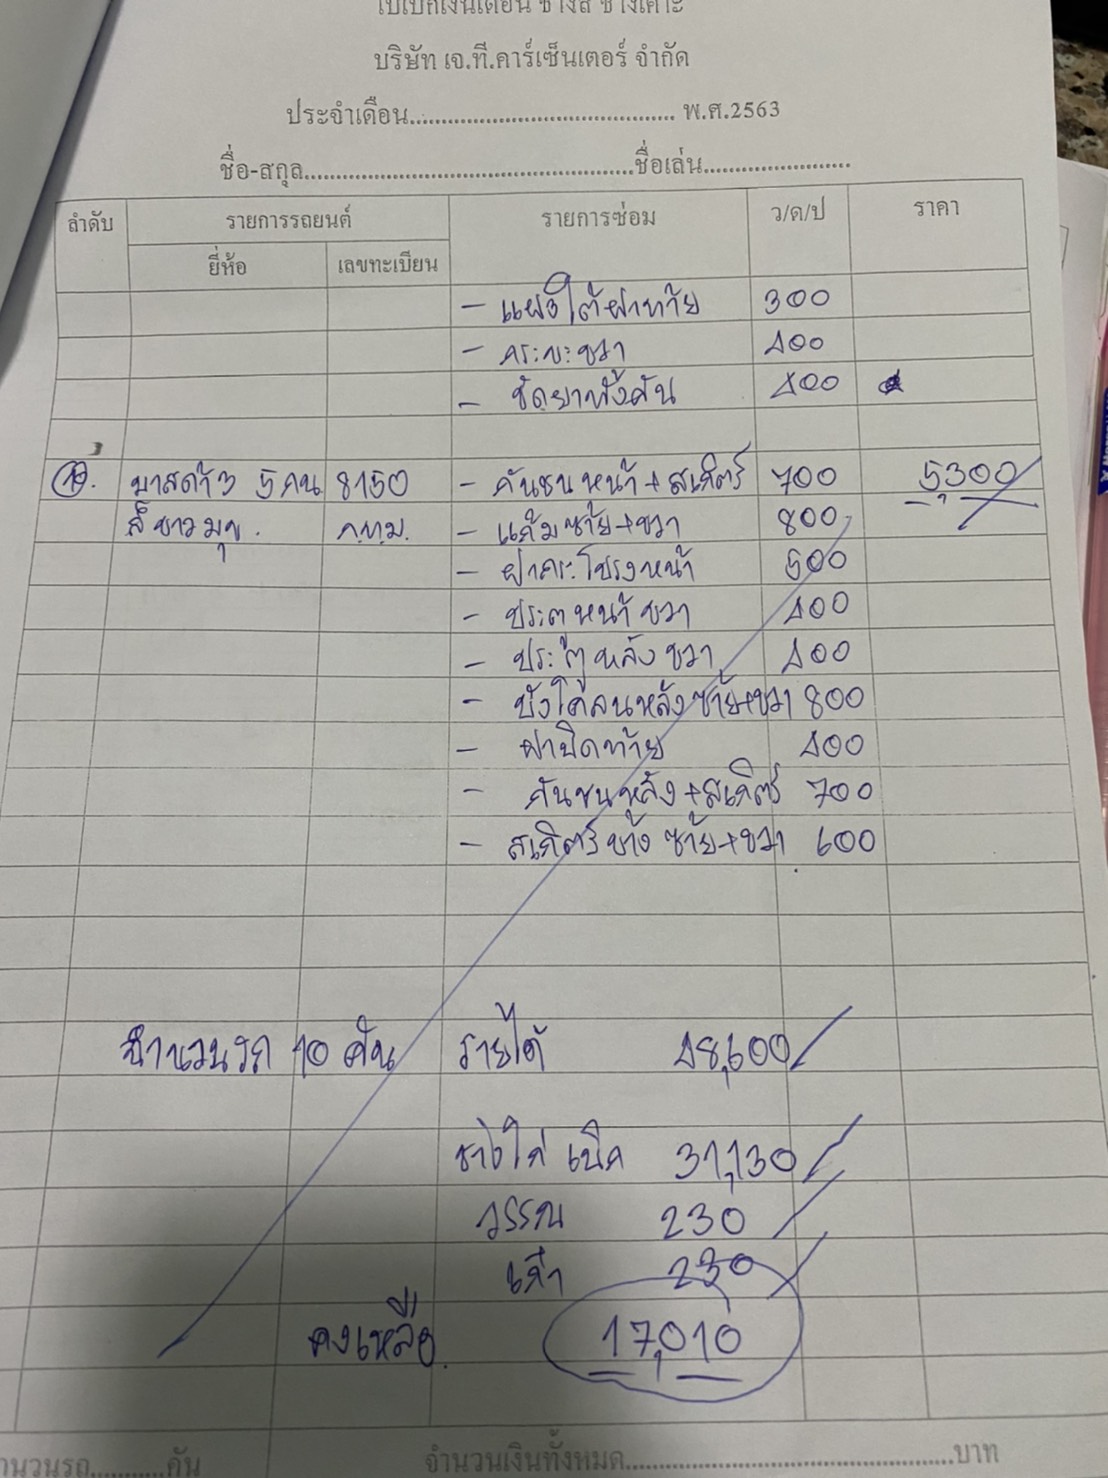 ใบเบิกเงินเดือน ช่างสี ช่างเคาะ
บริษัท เจ.ที.คาร์เซ็นเตอร์ จำกัด
ประจำเดือน............................................ พ.ศ.2563
ชื่อ-สกุล.......................................................ชื่อเล่น........................
ลำดับ รายการรถยนต์ รายการซ่อม ว/ด/ป ราคา
ยี่ห้อ เลขทะเบียน
- แผงใต้ฝาท้าย 300
- กระบะขวา 400
- ขัดยาทั้งคัน 400
10. มาสด้า3 5คน 8150 - กันชนหน้า+สเกิตร์ 700 5,300
สีขาวมุข. ก.ท.ม. - แก้มซ้าย+ขวา 800
- ฝากระโปรงหน้า 500
- ประตูหน้าขวา 400
- ประตูหลังขวา 400
- บังโคลนหลังซ้าย+ขวา 800
- ฝาปิดท้าย 400
- กันชนหลัง+สเกิตร์ 700
- สเกิตร์ข้างซ้าย+ขวา 600
จำนวนรถ 10 คัน รายได้ 48,600
ช่างไก่ เบิก 31,130
วรรณ 230
เก๋า 230
คงเหลือ 17,010
จำนวนรถ...........คัน จำนวนเงินทั้งหมด..................................................บาท